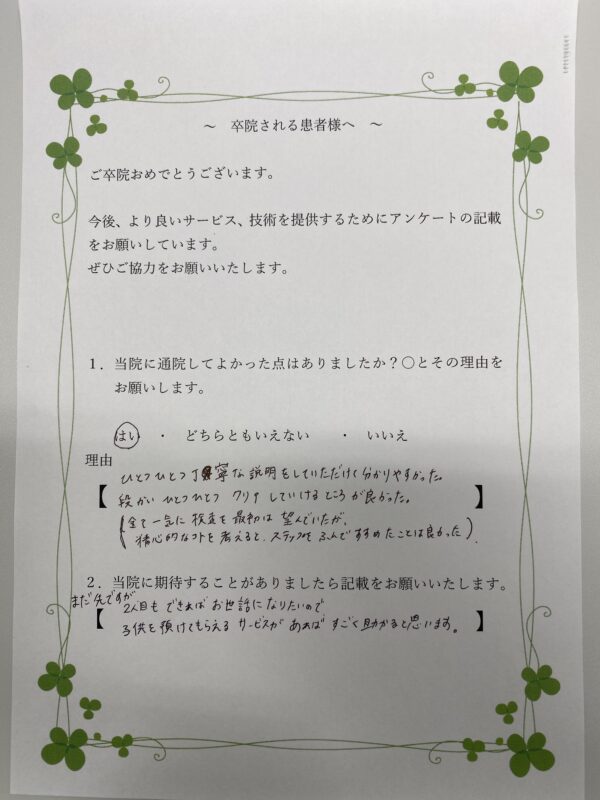 ～ 卒院される患者様へ ～
ご卒院おめでとうございます。
今後、より良いサービス、技術を提供するためにアンケートの記載
をお願いしています。
ぜひご協力をお願いいたします。
1．当院に通院してよかった点はありましたか？○とその理由を
お願いします。
はい ・ どちらともいえない ・ いいえ
理由
ひとつひとつ丁寧な説明をしていただけて分かりやすかった。
【 段かい ひとつひとつ クリアしていけるところが良かった。 】
(全て一気に検査を最初は望んでいたが、
精心的なコトを考えると、ステップをふんですすめたことは良かった).
2．当院に期待することがありましたら記載をお願いいたします。
まだ先ですが
【 2人目もできればお世話になりたいので 】
子供を預けてもらえるサービスがあればすごく助かると思います。